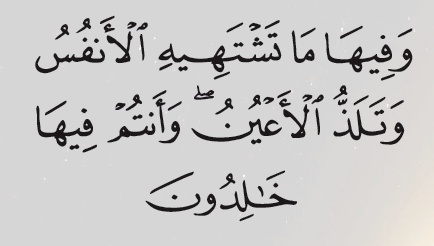 وَفِيهَا مَا تَشْتَهِيهِ ٱلْأَنفُسُ
وَتَلَذُّ ٱلْأَعْيُنُ ۖ وَأَنتُمْ فِيهَا
خَـٰلِدُونَ